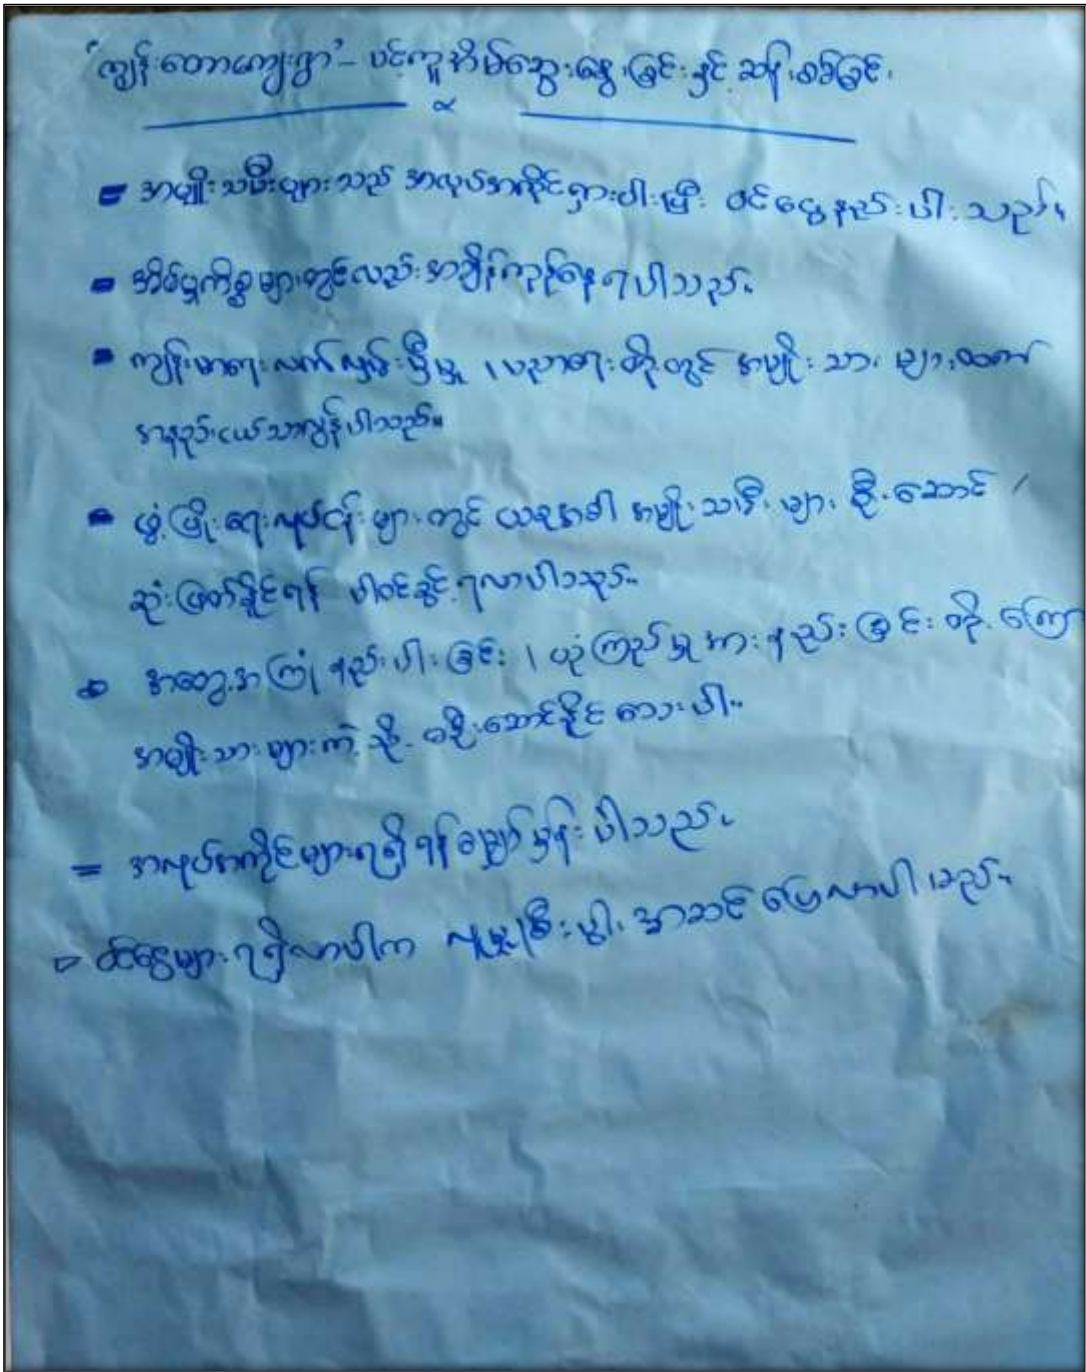 "ကျွန်းတောကျေးရွာ" - ပင့်ကူအိမ်ဆွေးနွေးခြင်းနှင့် ဆန်းစစ်ခြင်း
= အမျိုးသမီးများသည် အလုပ်အကိုင်ရှားပါးပြီး ဝင်ငွေနည်းပါးသည်။
= အိမ်မှုကိစ္စများတွင်လည်း အချိန်ကုန်နေရပါသည်။
= ကျန်းမာရေးလက်လှမ်းမှီမှု၊ ပညာရေးတို့တွင် အမျိုးသားများထက်
အနည်းငယ်သာလွန်ပါသည်။
= ဖွံ့ဖြိုးရေးလုပ်ငန်းများတွင် ယခုအခါ အမျိုးသမီးများ ဦးဆောင်
ဆုံးဖြတ်နိုင်ရန် ပါဝင်ခွင့်ရလာပါသည်။
= အတွေ့အကြုံနည်းပါးခြင်း၊ ယုံကြည်မှုအားနည်းခြင်းတို့ကြော
အမျိုးသားများကဲ့သို့ မဦးဆောင်နိုင်သေးပါ။
= အလုပ်အကိုင်များရရှိရန်မျှော်မှန်းပါသည်။
= ဝင်ငွေများရရှိလာပါက လူမှုစီးပွါး အဆင်ပြေလာပါသည်။